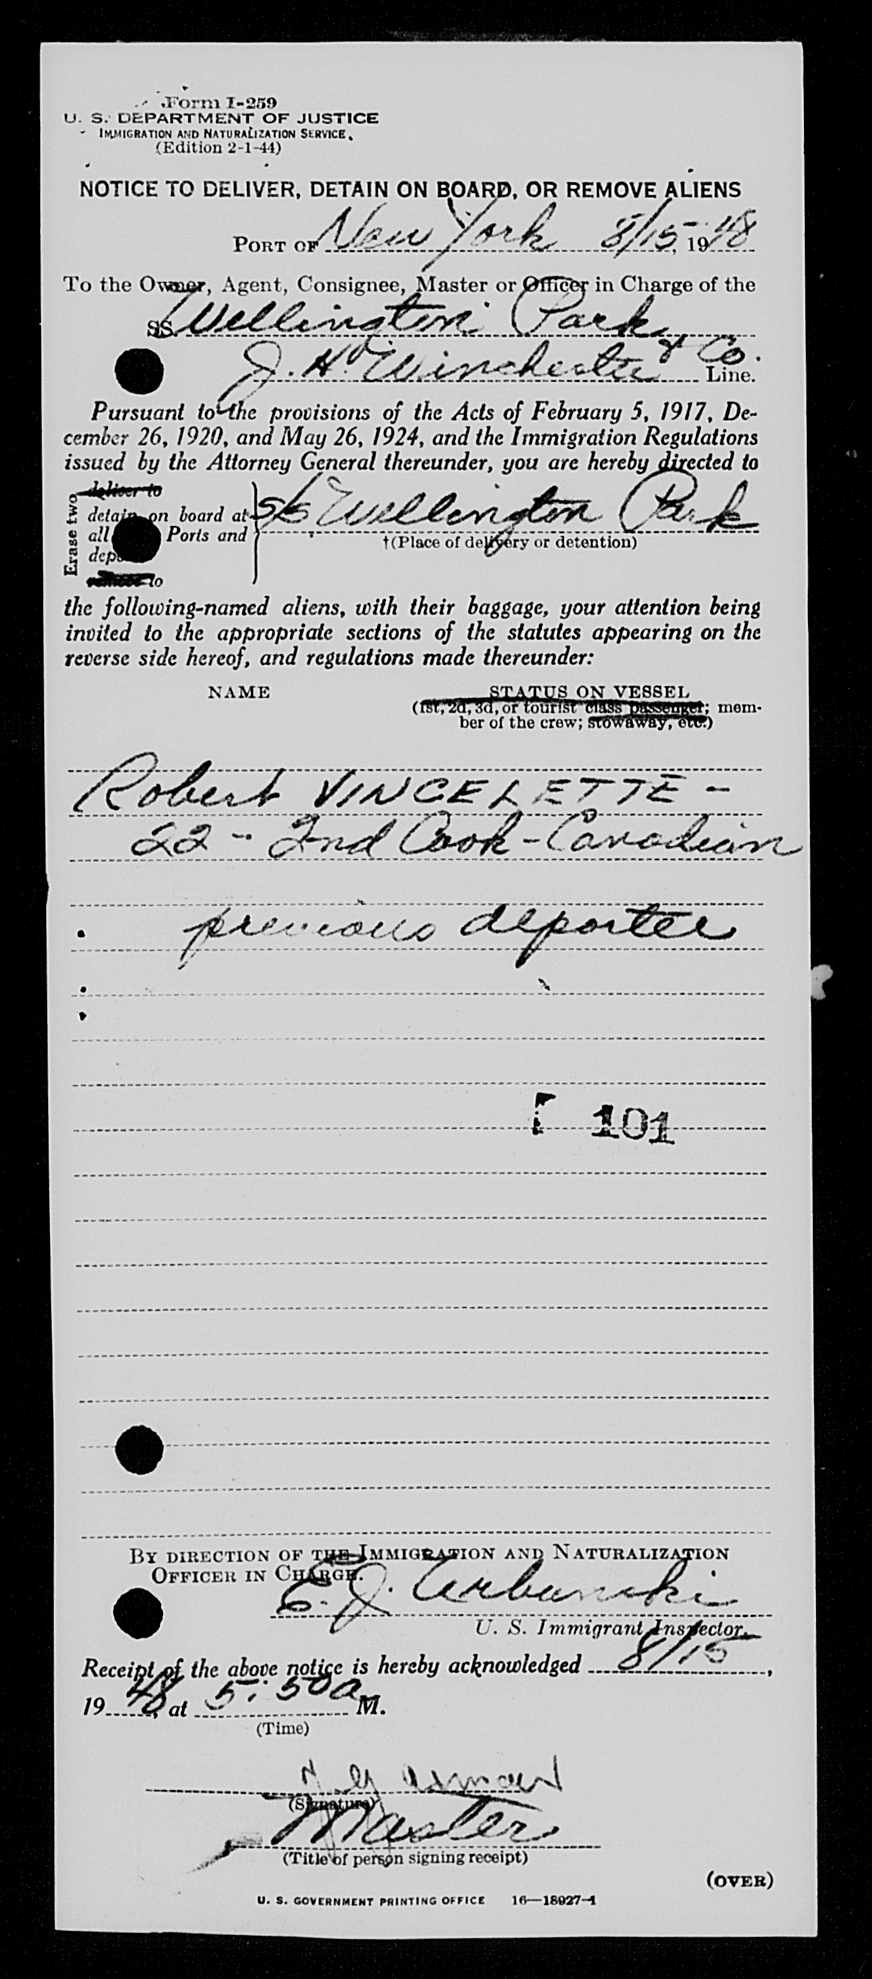 Form I-259
U. S. DEPARTMENT OF JUSTICE
IMMIGRATION AND NATURALIZATION SERVICE
(Edition 2-1-44)
NOTICE TO DELIVER, DETAIN ON BOARD, OR REMOVE ALIENS
PORT OF New York 8/15, 1948
To the Owner, Agent, Consignee, Master or Officer in Charge of the
SS Wellington Park
J. H. Winchester & Co. Line.
Pursuant to the provisions of the Acts of February 5, 1917, De-
cember 26, 1920, and May 26, 1924, and the Immigration Regulations
issued by the Attorney General thereunder, you are hereby directed to
Erase two
deliver to
detain on board at S/S Wellington Park
all Ports and
†(Place of delivery or detention)
remove to
the following-named aliens, with their baggage, your attention being
invited to the appropriate sections of the statutes appearing on the
reverse side hereof, and regulations made thereunder:
NAME STATUS ON VESSEL
(1st, 2d, 3d, or tourist class passenger; mem-
ber of the crew; stowaway, etc.)
Robert VINCELETTE -
22 - 2nd Cook - Canadian
previous deportee
101
BY DIRECTION OF THE IMMIGRATION AND NATURALIZATION
OFFICER IN CHARGE.
E. J. Urbanski
U. S. Immigrant Inspector.
Receipt of the above notice is hereby acknowledged 8/15,
1948, at 5:50 a M.
(Time)
(Signature)
Master
(Title of person signing receipt)
(OVER)
U. S. GOVERNMENT PRINTING OFFICE 16—18927-1